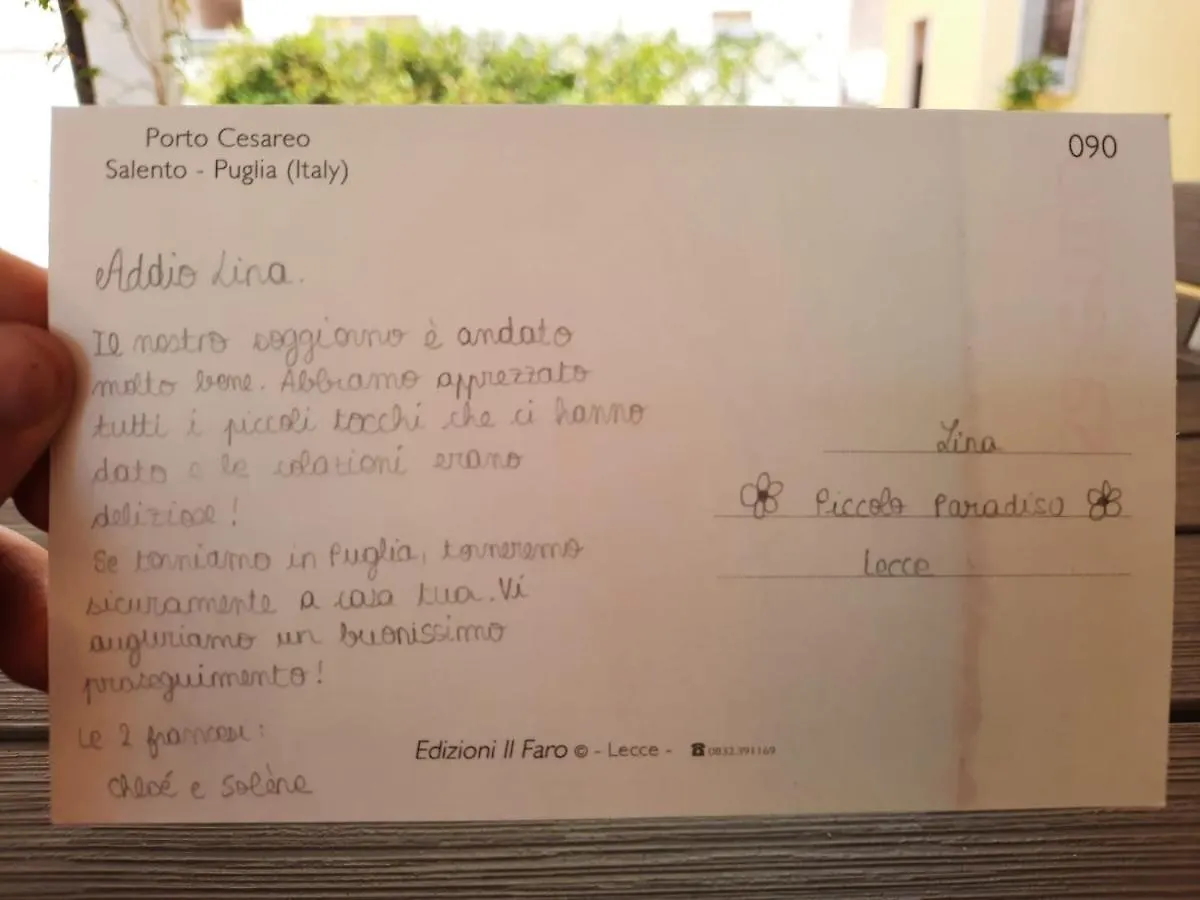 Porto Cesareo
Salento - Puglia (Italy)
090
Addio Lina.
Il nostro soggiorno è andato
molto bene. Abbiamo apprezzato
tutti i piccoli tocchi che ci hanno
dato e le colazioni erano
deliziose!
Se torniamo in Puglia, torneremo
sicuramente a casa tua. Vi
auguriamo un buonissimo
proseguimento!
Le 2 francesi:
Chloé e Solène
Lina
Piccolo Paradiso
Lecce
Edizioni Il Faro © - Lecce - ☎ 0832.391169